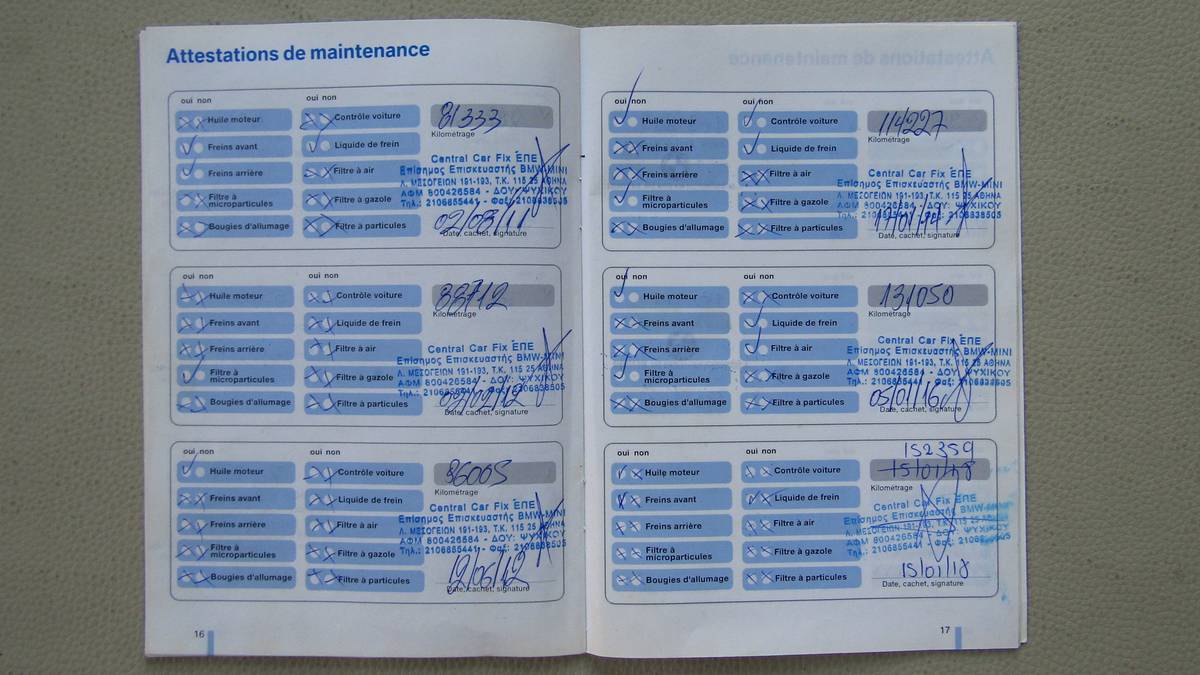 Attestations de maintenance
oui non oui non
Huile moteur Contrôle voiture 81333
Kilométrage
Freins avant Liquide de frein
Central Car Fix ΈΠΕ
Freins arrière Filtre à air
Επίσημος Επισκευαστής BMW-MINI
Λ. ΜΕΣΟΓΕΙΩΝ 191-193, Τ.Κ. 115 25 ΑΘΗΝΑ
Filtre à microparticules Filtre à gazole
ΑΦΜ 800426584 - ΔΟΥ: ΨΥΧΙΚΟΥ
Τηλ.: 2106855441 - Φαξ: 2106838505
Bougies d'allumage Filtre à particules
02/03/11
Date, cachet, signature
oui non oui non
Huile moteur Contrôle voiture 88712
Kilométrage
Freins avant Liquide de frein
Central Car Fix ΈΠΕ
Freins arrière Filtre à air
Επίσημος Επισκευαστής BMW-MINI
Λ. ΜΕΣΟΓΕΙΩΝ 191-193, Τ.Κ. 115 25 ΑΘΗΝΑ
Filtre à microparticules Filtre à gazole
ΑΦΜ 800426584 - ΔΟΥ: ΨΥΧΙΚΟΥ
Τηλ.: 2106855441 - Φαξ: 2106838505
Bougies d'allumage Filtre à particules
02/02/12
Date, cachet, signature
oui non oui non
Huile moteur Contrôle voiture 96005
Kilométrage
Freins avant Liquide de frein
Central Car Fix ΈΠΕ
Freins arrière Filtre à air
Επίσημος Επισκευαστής BMW-MINI
Λ. ΜΕΣΟΓΕΙΩΝ 191-193, Τ.Κ. 115 25 ΑΘΗΝΑ
Filtre à microparticules Filtre à gazole
ΑΦΜ 800426584 - ΔΟΥ: ΨΥΧΙΚΟΥ
Τηλ.: 2106855441 - Φαξ: 2106838505
Bougies d'allumage Filtre à particules
12/06/12
Date, cachet, signature
16
oui non oui non
Huile moteur Contrôle voiture 114227
Kilométrage
Freins avant Liquide de frein
Central Car Fix ΈΠΕ
Freins arrière Filtre à air
Επίσημος Επισκευαστής BMW-MINI
Λ. ΜΕΣΟΓΕΙΩΝ 191-193, Τ.Κ. 115 25 ΑΘΗΝΑ
Filtre à microparticules Filtre à gazole
ΑΦΜ 800426584 - ΔΟΥ: ΨΥΧΙΚΟΥ
Τηλ.: 2106855441 - Φαξ: 2106838505
Bougies d'allumage Filtre à particules
Date, cachet, signature
oui non oui non
Huile moteur Contrôle voiture 131050
Kilométrage
Freins avant Liquide de frein
Central Car Fix ΈΠΕ
Freins arrière Filtre à air
Επίσημος Επισκευαστής BMW-MINI
Λ. ΜΕΣΟΓΕΙΩΝ 191-193, Τ.Κ. 115 25 ΑΘΗΝΑ
Filtre à microparticules Filtre à gazole
ΑΦΜ 800426584 - ΔΟΥ: ΨΥΧΙΚΟΥ
Τηλ.: 2106855441 - Φαξ: 2106838505
Bougies d'allumage Filtre à particules
05/01/16
Date, cachet, signature
oui non oui non 152359
Huile moteur Contrôle voiture 15/01/18
Kilométrage
Freins avant Liquide de frein
Central Car Fix ΈΠΕ
Επίσημος Επισκευαστής BMW-MINI
Freins arrière Filtre à air
Λ. ΜΕΣΟΓΕΙΩΝ 191-193, Τ.Κ. 115 25 ΑΘΗΝΑ
ΑΦΜ 800426584 - ΔΟΥ: ΨΥΧΙΚΟΥ
Filtre à microparticules Filtre à gazole
Τηλ.: 2106855441 - Φαξ: 2106838505
Bougies d'allumage Filtre à particules
15/01/18
Date, cachet, signature
17